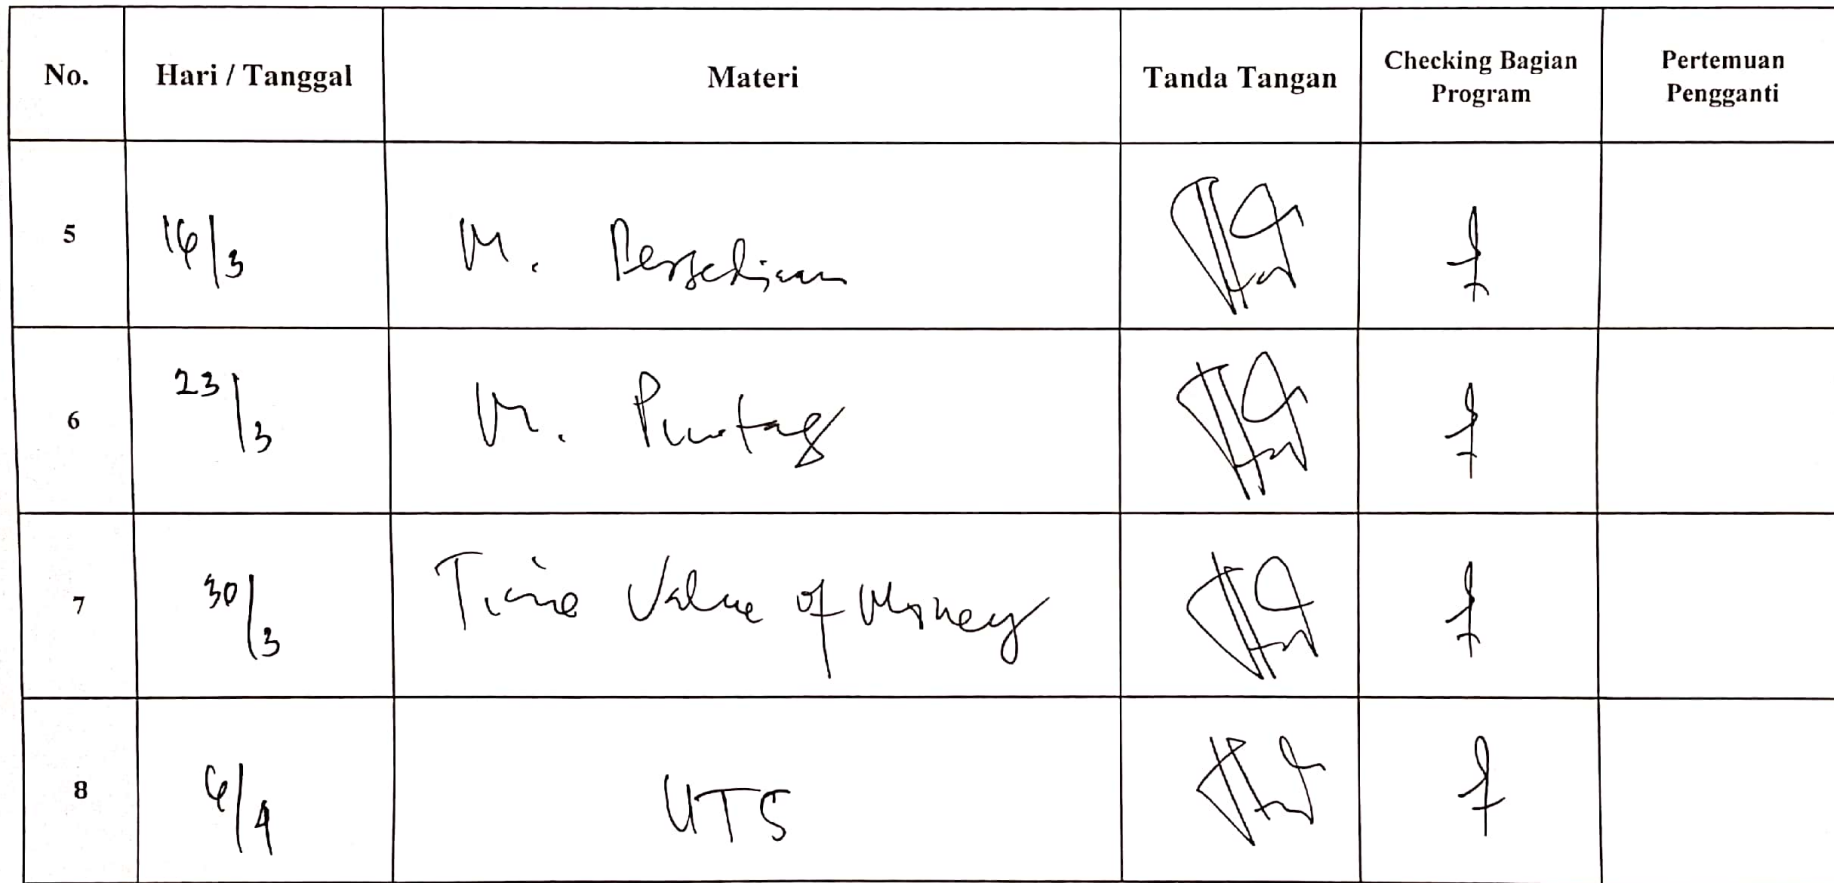 No. Hari / Tanggal Materi Tanda Tangan Checking Bagian Program Pertemuan Pengganti
5 16/3 M. Persediaan
6 23/3 M. Piutang
7 30/3 Time Value of Money
8 6/4 UTS